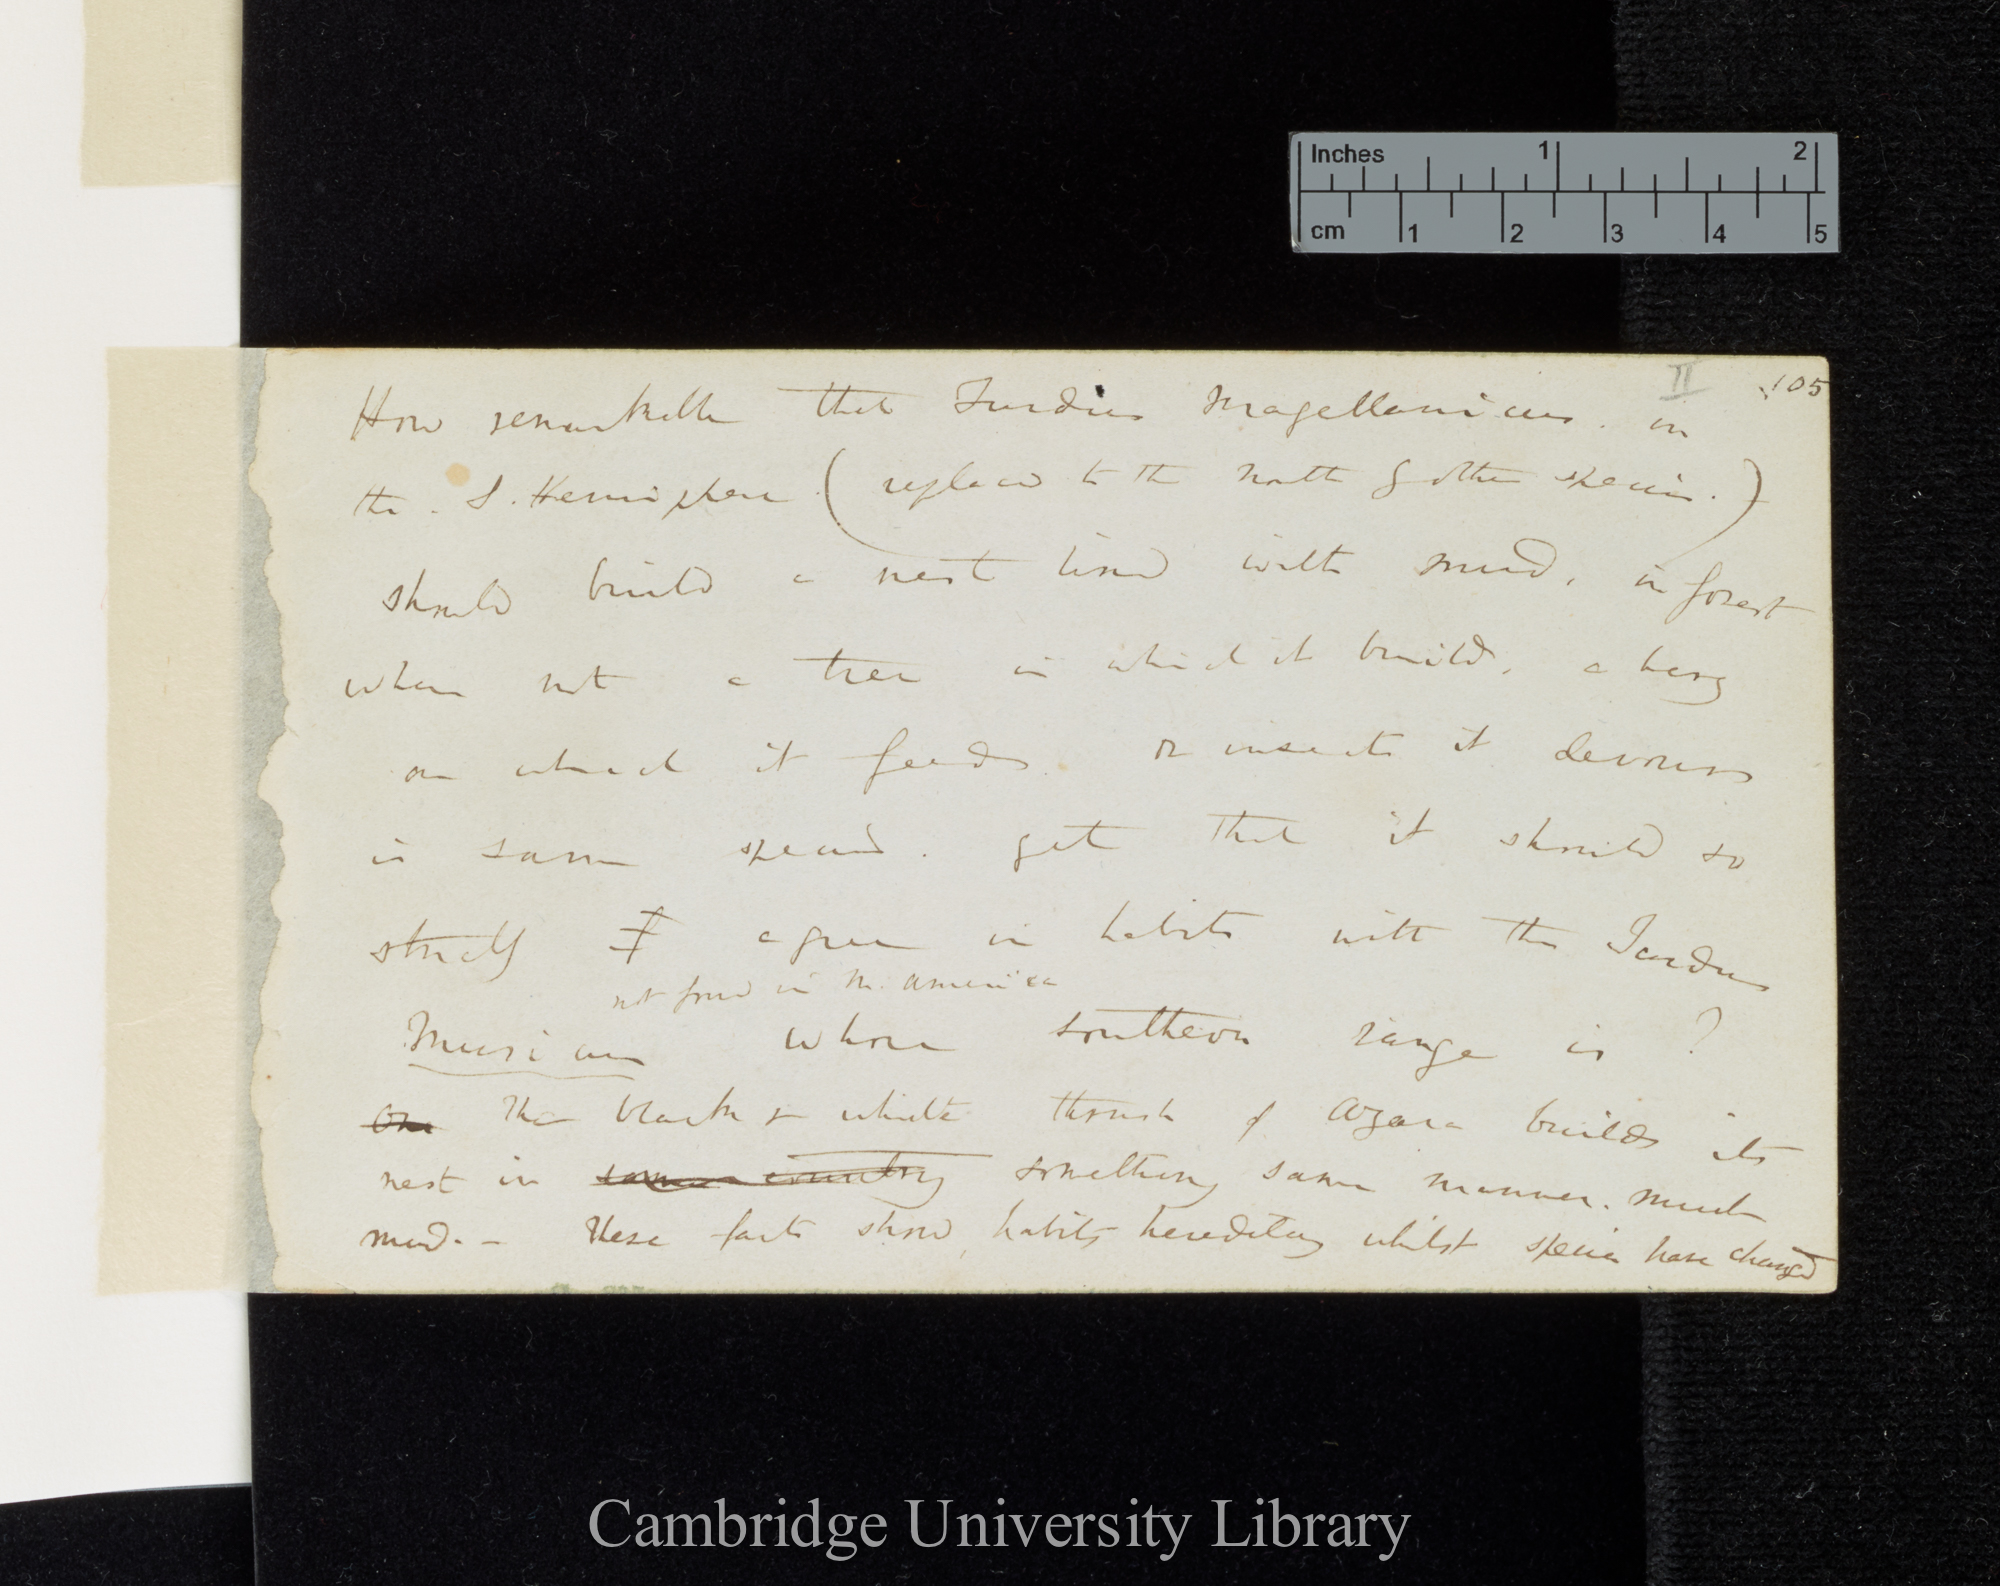 Inches 1 2
cm 1 2 3 4 5
II 105
How remarkable that Turdus Magellanicus. in
the. S. Hemisphere (replaced to the north by other species.)
should build a nest lined with mud, in forest
where not a tree in which it builds, a berry
on which it feeds or insects it devours
is same species. yet that it should so
strictly agree in habits with the Turdus
not found in N. America
Musicus whose southern range is ?
One The black & white thrush of Azara builds its
nest in same country something same manner. much
mud. - These facts show, habits hereditary whilst species have changed
Cambridge University Library